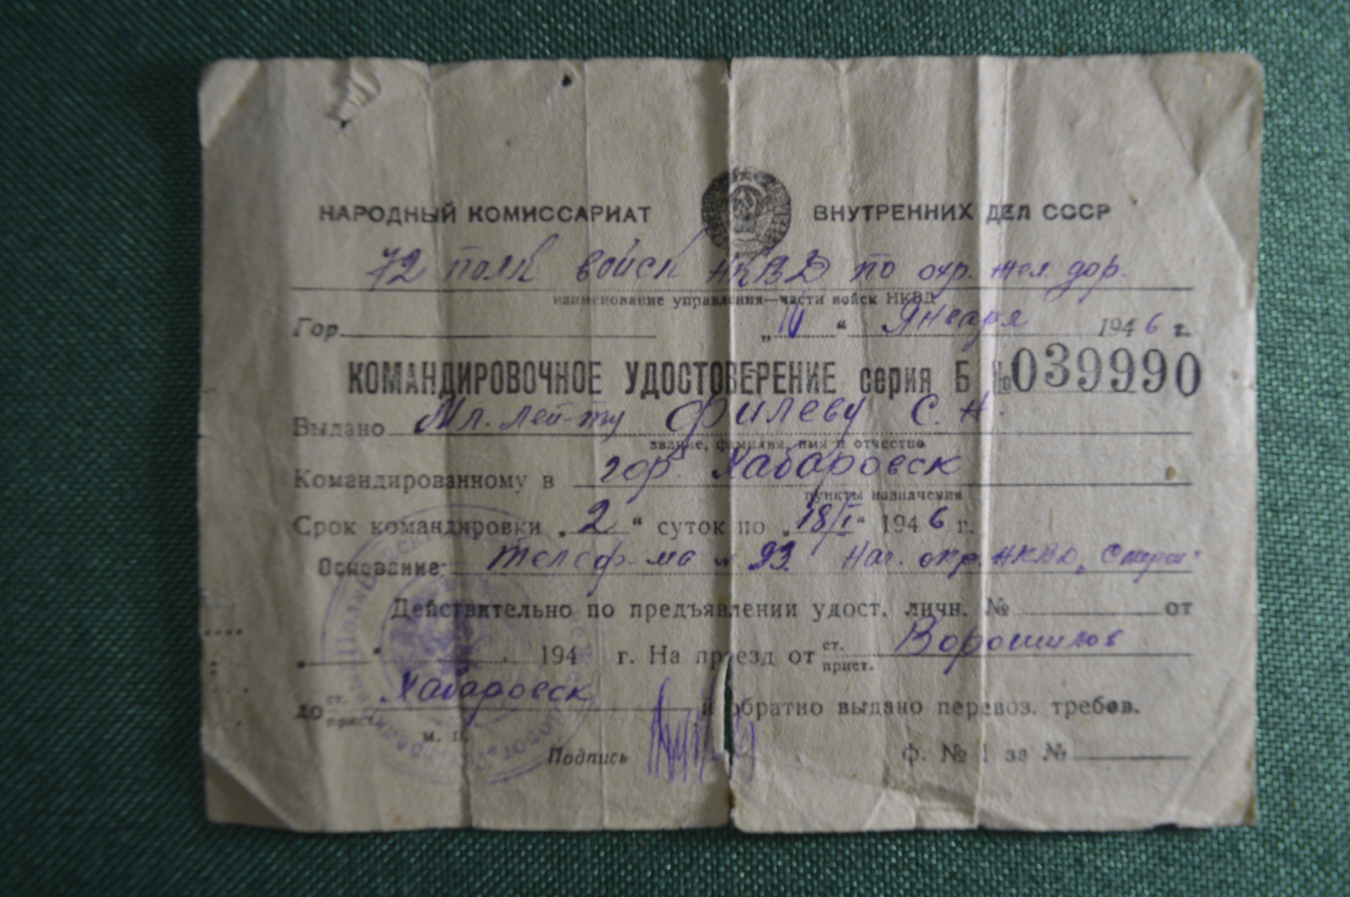 НАРОДНЫЙ КОМИССАРИАТ ВНУТРЕННИХ ДЕЛ СССР
72 полк войск НКВД по охр. жел. дор.
наименование управления—части войск НКВД
Гор. „ “ Января 1946 г.
КОМАНДИРОВОЧНОЕ УДОСТОВЕРЕНИЕ серия Б № 039990
Выдано Мл. лей-ту Филеву С. Н.
звание, фамилия, имя и отчество
Командированному в гор. Хабаровск
пункты назначения
Срок командировки „2“ суток по „18/I“ 1946 г.
Основание: Телеф-ма № 93. Нач. окр. НКВД
Действительно по предъявлении удост. личн. № от
„ “ 194 г. На проезд от ст. прист. Ворошилов
до ст. прист. Хабаровск и обратно выдано перевоз. требов.
м. п.
Подпись ф. № 1 за №